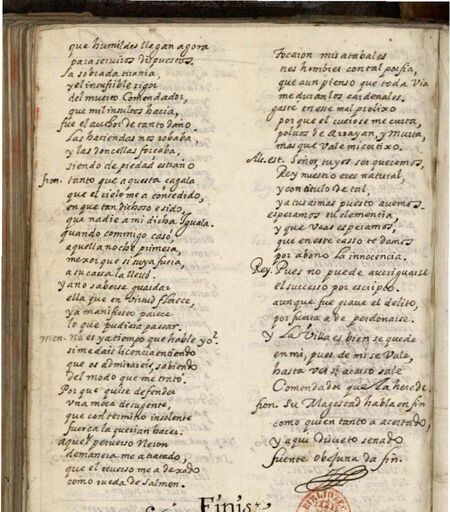 que humildes llegan agora
para serviros dispuestos.
la sobrada tirania,
y el insufrible rigor
del muerto Comendador,
que mil insultos hacia,
fue el author de tanto daño.
Las haciendas nos robaba,
y las doncellas forcaba,
siendo de piedad estraño
fron. tanto que aquesta çagala
que el cielo me a concedido,
en que tan dichoso e sido,
que nadie a mi dicha iguala.
quando conmigo casó,
aquella noche primera,
mexor que si suya fuera,
a su casa la llevó.
y a no saberse guardar
ella que en virtud florece,
ya manifiesto parece
lo que pudiera passar.
men. no es ya tiempo que hable yo?
si me dais licencia entiendo
que os admirareis sabiendo
del modo que me trató.
Porque quise defender
una moça de su gente,
que con termino insolente
fuerça la querian hacer.
aquel perverso Neron
de manera me a tratado,
que el reverso me a dexado
como rueda de salmon.
Tocaron mis atabales
tres hombres con tal porfia,
que aun pienso que todavia
me duran los cardenales.
gasté en este mal prolixo
por que el cuero se me curta,
polvos de arrayan, y murta,
mas que vale mi cortixo.
Alc. est. Señor, tuyos ser queremos,
Rey nuestro eres natural,
y con titulo de tal,
ya tus armas puesto avemos.
esperamos tu clemencia,
y que veas esperamos,
que en este casso te damos
por abono la innocencia.
Rey. Pues no puede averiguarse
el successo por escripto.
aunque fue grave el delito,
por fuerça a de perdonarse.
Y la Villa es bien se quede
en mi, pues de mi se vale,
hasta ver si acaso sale
Comendador que la herede.
fron. Su Magestad habla en fin
como quien tanto a acertado,
y aqui Discreto senado
fuente obejuna da fin.
Finis